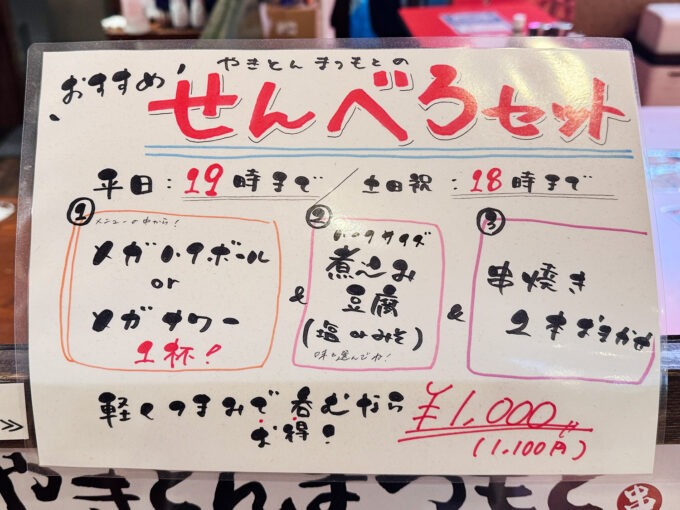 おすすめ!
やきとん まつもとの
せんべろセット
平日:19時まで / 土日祝:18時まで
①
メニューの中から!
メガハイボール
or
メガサワー
1杯!
&
②
ハーフサイズ
煮込み
豆腐
(塩 or みそ)
味を選んでね!
&
③
串焼き
2本おまかせ
軽くつまみで呑むなら
お得!
¥1,000
(1,100円)
>>
やきとんまつもと
串